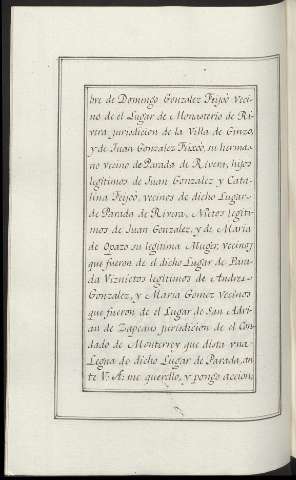 bre de Domingo Gonzalez Feijoò veci-
no de el Lugar de Monasterio de Ri-
vera jurisdicion de la Villa de Ginzo,
y de Juan Gonzalez Feixoò, su herma-
no vecino de Parada de Rivera, hijos
legitimos de Juan Gonzalez y Cata-
lina Feijoò, vecinos de dicho Lugar
de Parada de Rivera, Nietos legiti-
mos de Juan Gonzalez, y de Maria
de Opazo su legitima Muger, vecinos
que fueron de el dicho Lugar de Para-
da Viznietos legitimos de Andres
Gonzalez, y Maria Gomez vecinos
que fueron de el Lugar de San Adri-
an de Zapeaus jurisdicion de el Con-
dado de Monterrey que dista vna
Legua de dicho Lugar de Parada, an-
te V. A. me querello, y pongo accion,